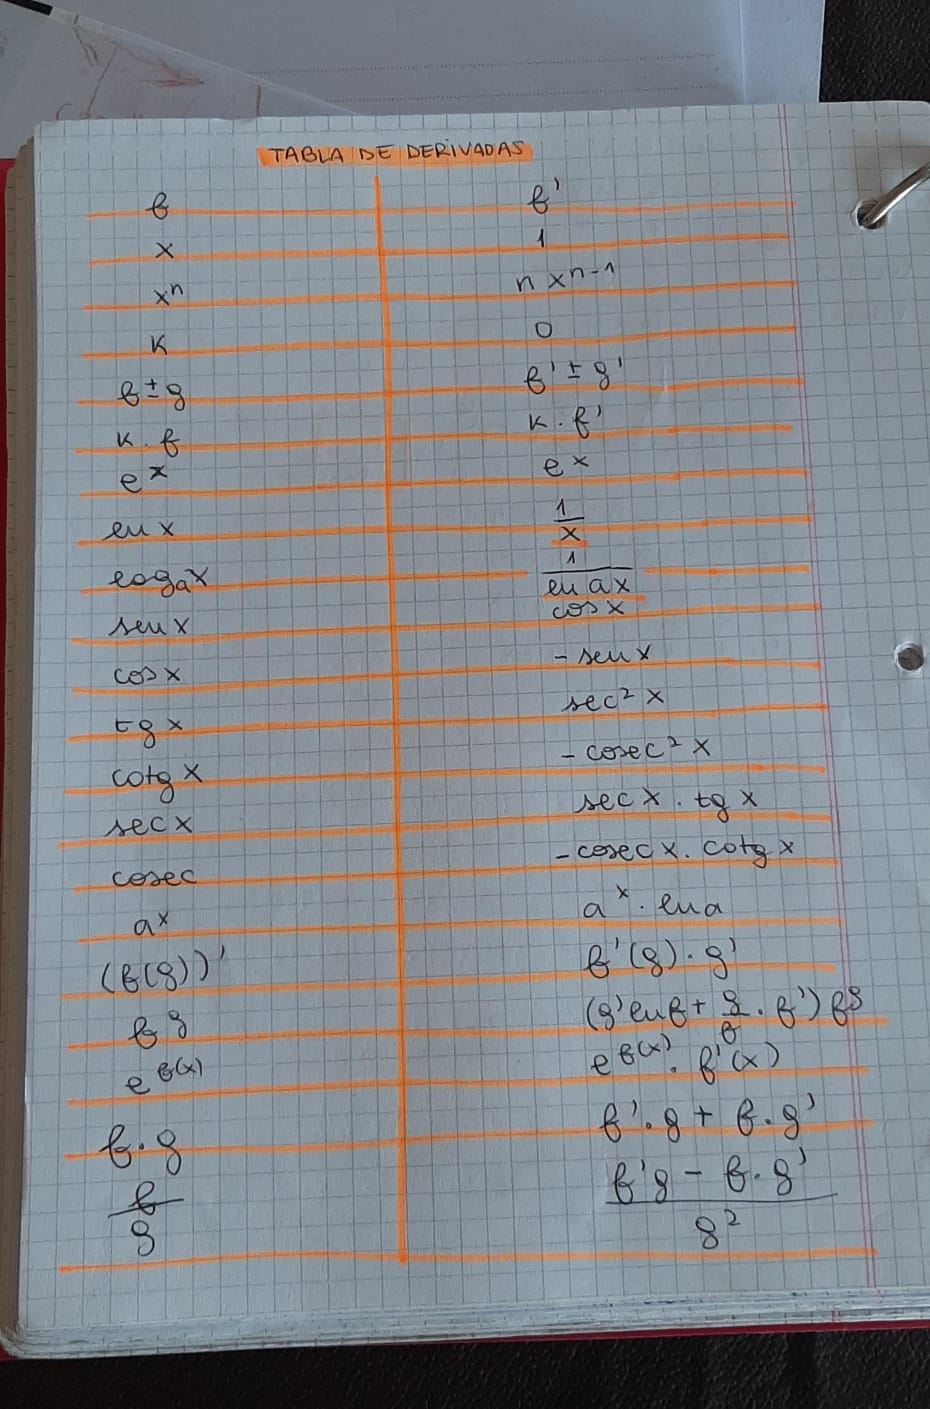 TABLA DE DERIVADAS
f f'
x 1
xⁿ n xⁿ⁻¹
K 0
f ± g f' ± g'
K · f K · f'
eˣ eˣ
ln x 1/x
logₐx 1/(ln a x)
sen x cos x
cos x - sen x
tg x sec² x
cotg x - cosec² x
sec x sec x · tg x
cosec - cosec x · cotg x
aˣ aˣ · ln a
(f(g))' f'(g) · g'
f^g (g' ln f + g/f · f') f^g
e^f(x) e^f(x) · f'(x)
f · g f' · g + f · g'
f/g (f'g - f · g')/g²